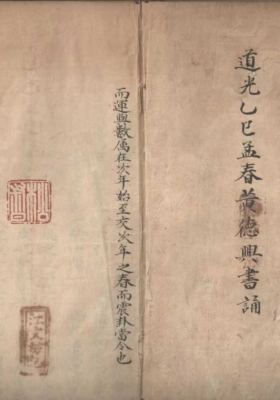 道光乙巳孟春黄德興書誦
而運與数属在次年始至交次年之春而震卦當令也